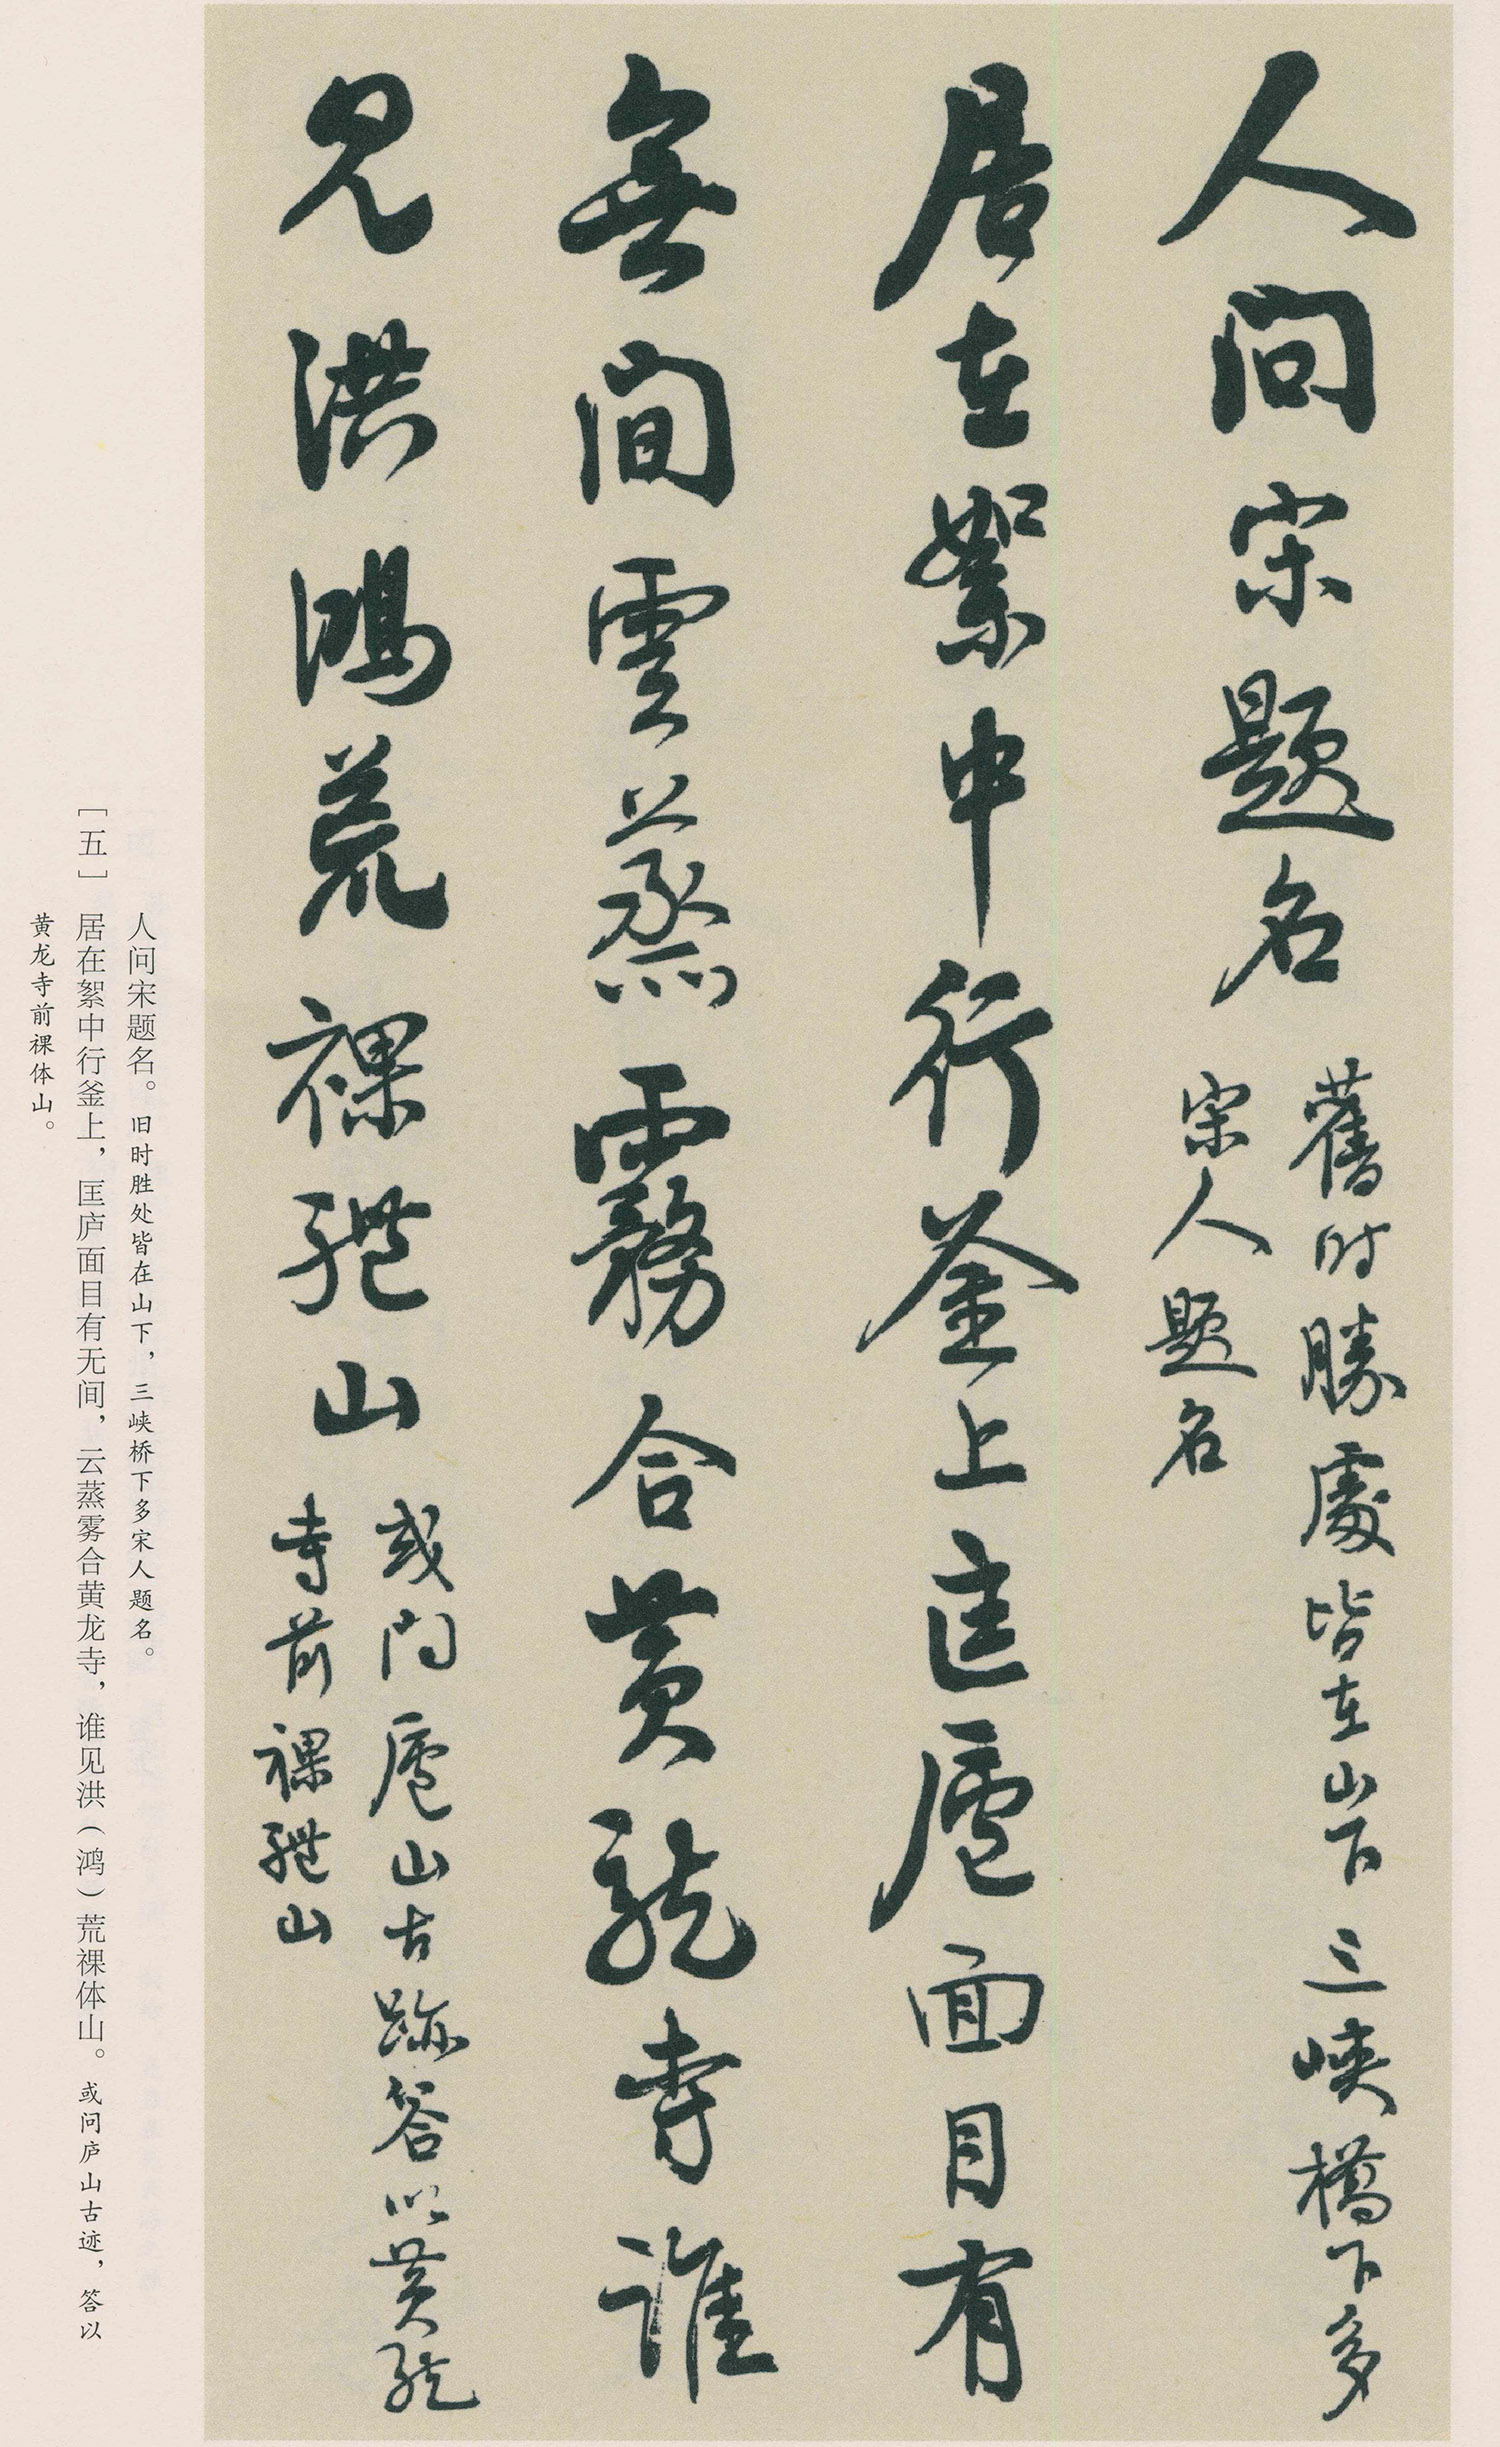 人问宋题名
舊时勝處皆在山下三峡橋下多
宋人题名
居在絮中行釜上匡廬面目有
無间雲蒸霧合黄龍寺谁
见洪鴻荒裸體山
或问廬山古跡答以黄龍
寺前裸體山
人问宋题名。旧时胜处皆在山下，三峡桥下多宋人题名。
［五］居在絮中行釜上，匡庐面目有无间，云蒸雾合黄龙寺，谁见洪（鸿）荒裸体山。或问庐山古迹，答以
黄龙寺前裸体山。